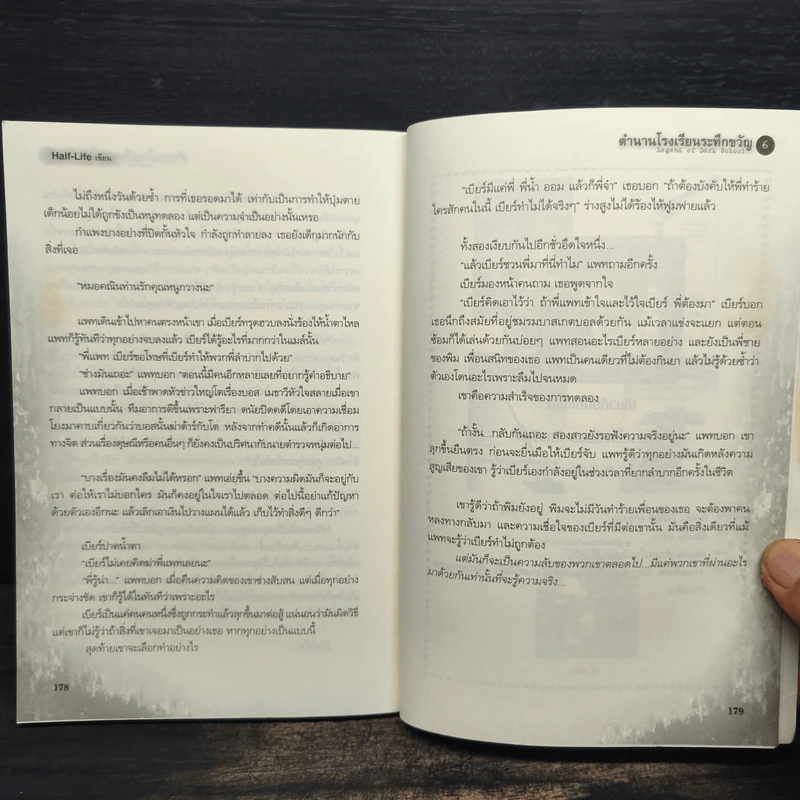 Half-Life เขียน
ไม่ถึงหนึ่งวันด้วยซ้ำ การที่เธอรอดมาได้ เท่ากับเป็นการทำให้บุ๋มตาย
เด็กน้อยไม่ได้ถูกขังเป็นหนูทดลอง แต่เป็นความจำเป็นอย่างนั้นเหรอ
กำแพงบางอย่างที่ปิดกั้นหัวใจ กำลังถูกทำลายลง เธอยังเด็กมากนักกับ
สิ่งที่เจอ
“หมอคณินท่านรักคุณหนูกวางนะ”
แพทเดินเข้าไปหาคนตรงหน้าเขา เมื่อเบียร์ทรุดฮวบลงนั่งร้องไห้น้ำตาไหล
แพทก็รู้ทันทีว่าทุกอย่างจบลงแล้ว เบียร์ได้รู้อะไรที่มากกว่าในเมล์นั้น
“พี่แพท เบียร์ขอโทษที่เบียร์ทำให้พวกพี่ลำบากไปด้วย”
“ช่างมันเถอะ” แพทบอก “ตอนนี้มีคนอีกหลายเลยที่อยากรู้คำอธิบาย”
แพทบอก เมื่อเช้าพาดหัวข่าวใหญ่โตเรื่องบอส เมธาวีหัวใจสลายเมื่อเขา
กลายเป็นแบบนั้น ทีมอาการดีขึ้นเพราะฟารียา ดนัยปิดคดีโดยเอาความเชื่อม
โยงมาคาบเกี่ยวกันว่าบอสนั้นฆ่าต้าร์กับโต หลังจากทำคดีนั้นแล้วก็เกิดอาการ
ทางจิต ส่วนเรื่องดุษณีหรือคนอื่นๆ ก็ยังคงเป็นปริศนากับนายตำรวจหนุ่มต่อไป...
“บางเรื่องมันคงลืมไม่ได้หรอก” แพทเอ่ยขึ้น “บางความผิดมันก็จะอยู่กับ
เรา ต่อให้เราไม่บอกใคร มันก็คงอยู่ในใจเราไปตลอด ต่อไปนี้อย่าแก้ปัญหา
ด้วยตัวเองอีกนะ แล้วเลิกเอาเงินไปวางแผนได้แล้ว เก็บไว้ทำสิ่งดีๆ ดีกว่า”
เบียร์ปาดน้ำตา
“เบียร์ไม่เคยคิดฆ่าพี่แพทเลยนะ”
“พี่รู้น่า...” แพทบอก เมื่อคืนความคิดของเขาช่างสับสน แต่เมื่อทุกอย่าง
กระจ่างชัด เขาก็รู้ได้ในทันทีว่าเพราะอะไร
เบียร์เป็นแค่คนคนหนึ่งซึ่งถูกกระทำแล้วลุกขึ้นมาต่อสู้ แน่นอนว่ามันผิดวิธี
แต่เขาก็ไม่รู้ว่าถ้าสิ่งที่เขาเจอมาเป็นอย่างเธอ หากทุกอย่างเป็นแบบนี้
สุดท้ายเขาจะเลือกทำอย่างไร
178
ตำนานโรงเรียนระทึกขวัญ 6
Legend of Dark School
“เบียร์มีแค่พี่ พี่น้ำ ออม แล้วก็พี่จ๋า” เธอบอก “ถ้าต้องบังคับให้พี่ทำร้าย
ใครสักคนในนี้ เบียร์ทำไม่ได้จริงๆ” ร่างสูงไม่ได้ร้องไห้ฟูมฟายแล้ว
ทั้งสองเงียบกันไปอีกชั่วอึดใจหนึ่ง...
“แล้วเบียร์ชวนพี่มาที่นี่ทำไม” แพทถามอีกครั้ง
เบียร์มองหน้าคนถาม เธอพูดจากใจ
“เบียร์คิดเอาไว้ว่า ถ้าพี่แพทเข้าใจและไว้ใจเบียร์ พี่ต้องมา” เบียร์บอก
เธอนึกถึงสมัยที่อยู่ชมรมบาสเกตบอลด้วยกัน แม้เวลาแข่งจะแยก แต่ตอน
ซ้อมก็ได้เล่นด้วยกันบ่อยๆ แพทสอนอะไรเบียร์หลายอย่าง และยังเป็นพี่ชาย
ของพิม เพื่อนสนิทของเธอ แพทเป็นคนเดียวที่ไม่ต้องกินยา แล้วไม่รู้ด้วยซ้ำว่า
ตัวเองโดนอะไรเพราะลืมไปจนหมด
เขาคือความสำเร็จของการทดลอง
“ถ้างั้น...กลับกันเถอะ สองสาวยังรอฟังความจริงอยู่นะ” แพทบอก เขา
ลุกขึ้นยืนตรง ก่อนจะยื่นมือให้เบียร์จับ แพทรู้ดีว่าทุกอย่างมันเกิดหลังความ
สูญเสียของเขา รู้ว่าเบียร์เองกำลังอยู่ในช่วงเวลาที่ยากลำบากอีกครั้งในชีวิต
เขารู้ดีว่าถ้าพิมยังอยู่ พิมจะไม่มีวันทำร้ายเพื่อนของเธอ จะต้องพาคน
หลงทางกลับมา และความเชื่อใจของเบียร์ที่มีต่อเขานั้น มันคือสิ่งเดียวที่แม้
แพทจะรู้ว่าเบียร์ทำไม่ถูกต้อง
แต่มันก็จะเป็นความลับของพวกเขาตลอดไป...มีแค่พวกเขาที่ผ่านอะไร
มาด้วยกันเท่านั้นที่จะรู้ความจริง...
179